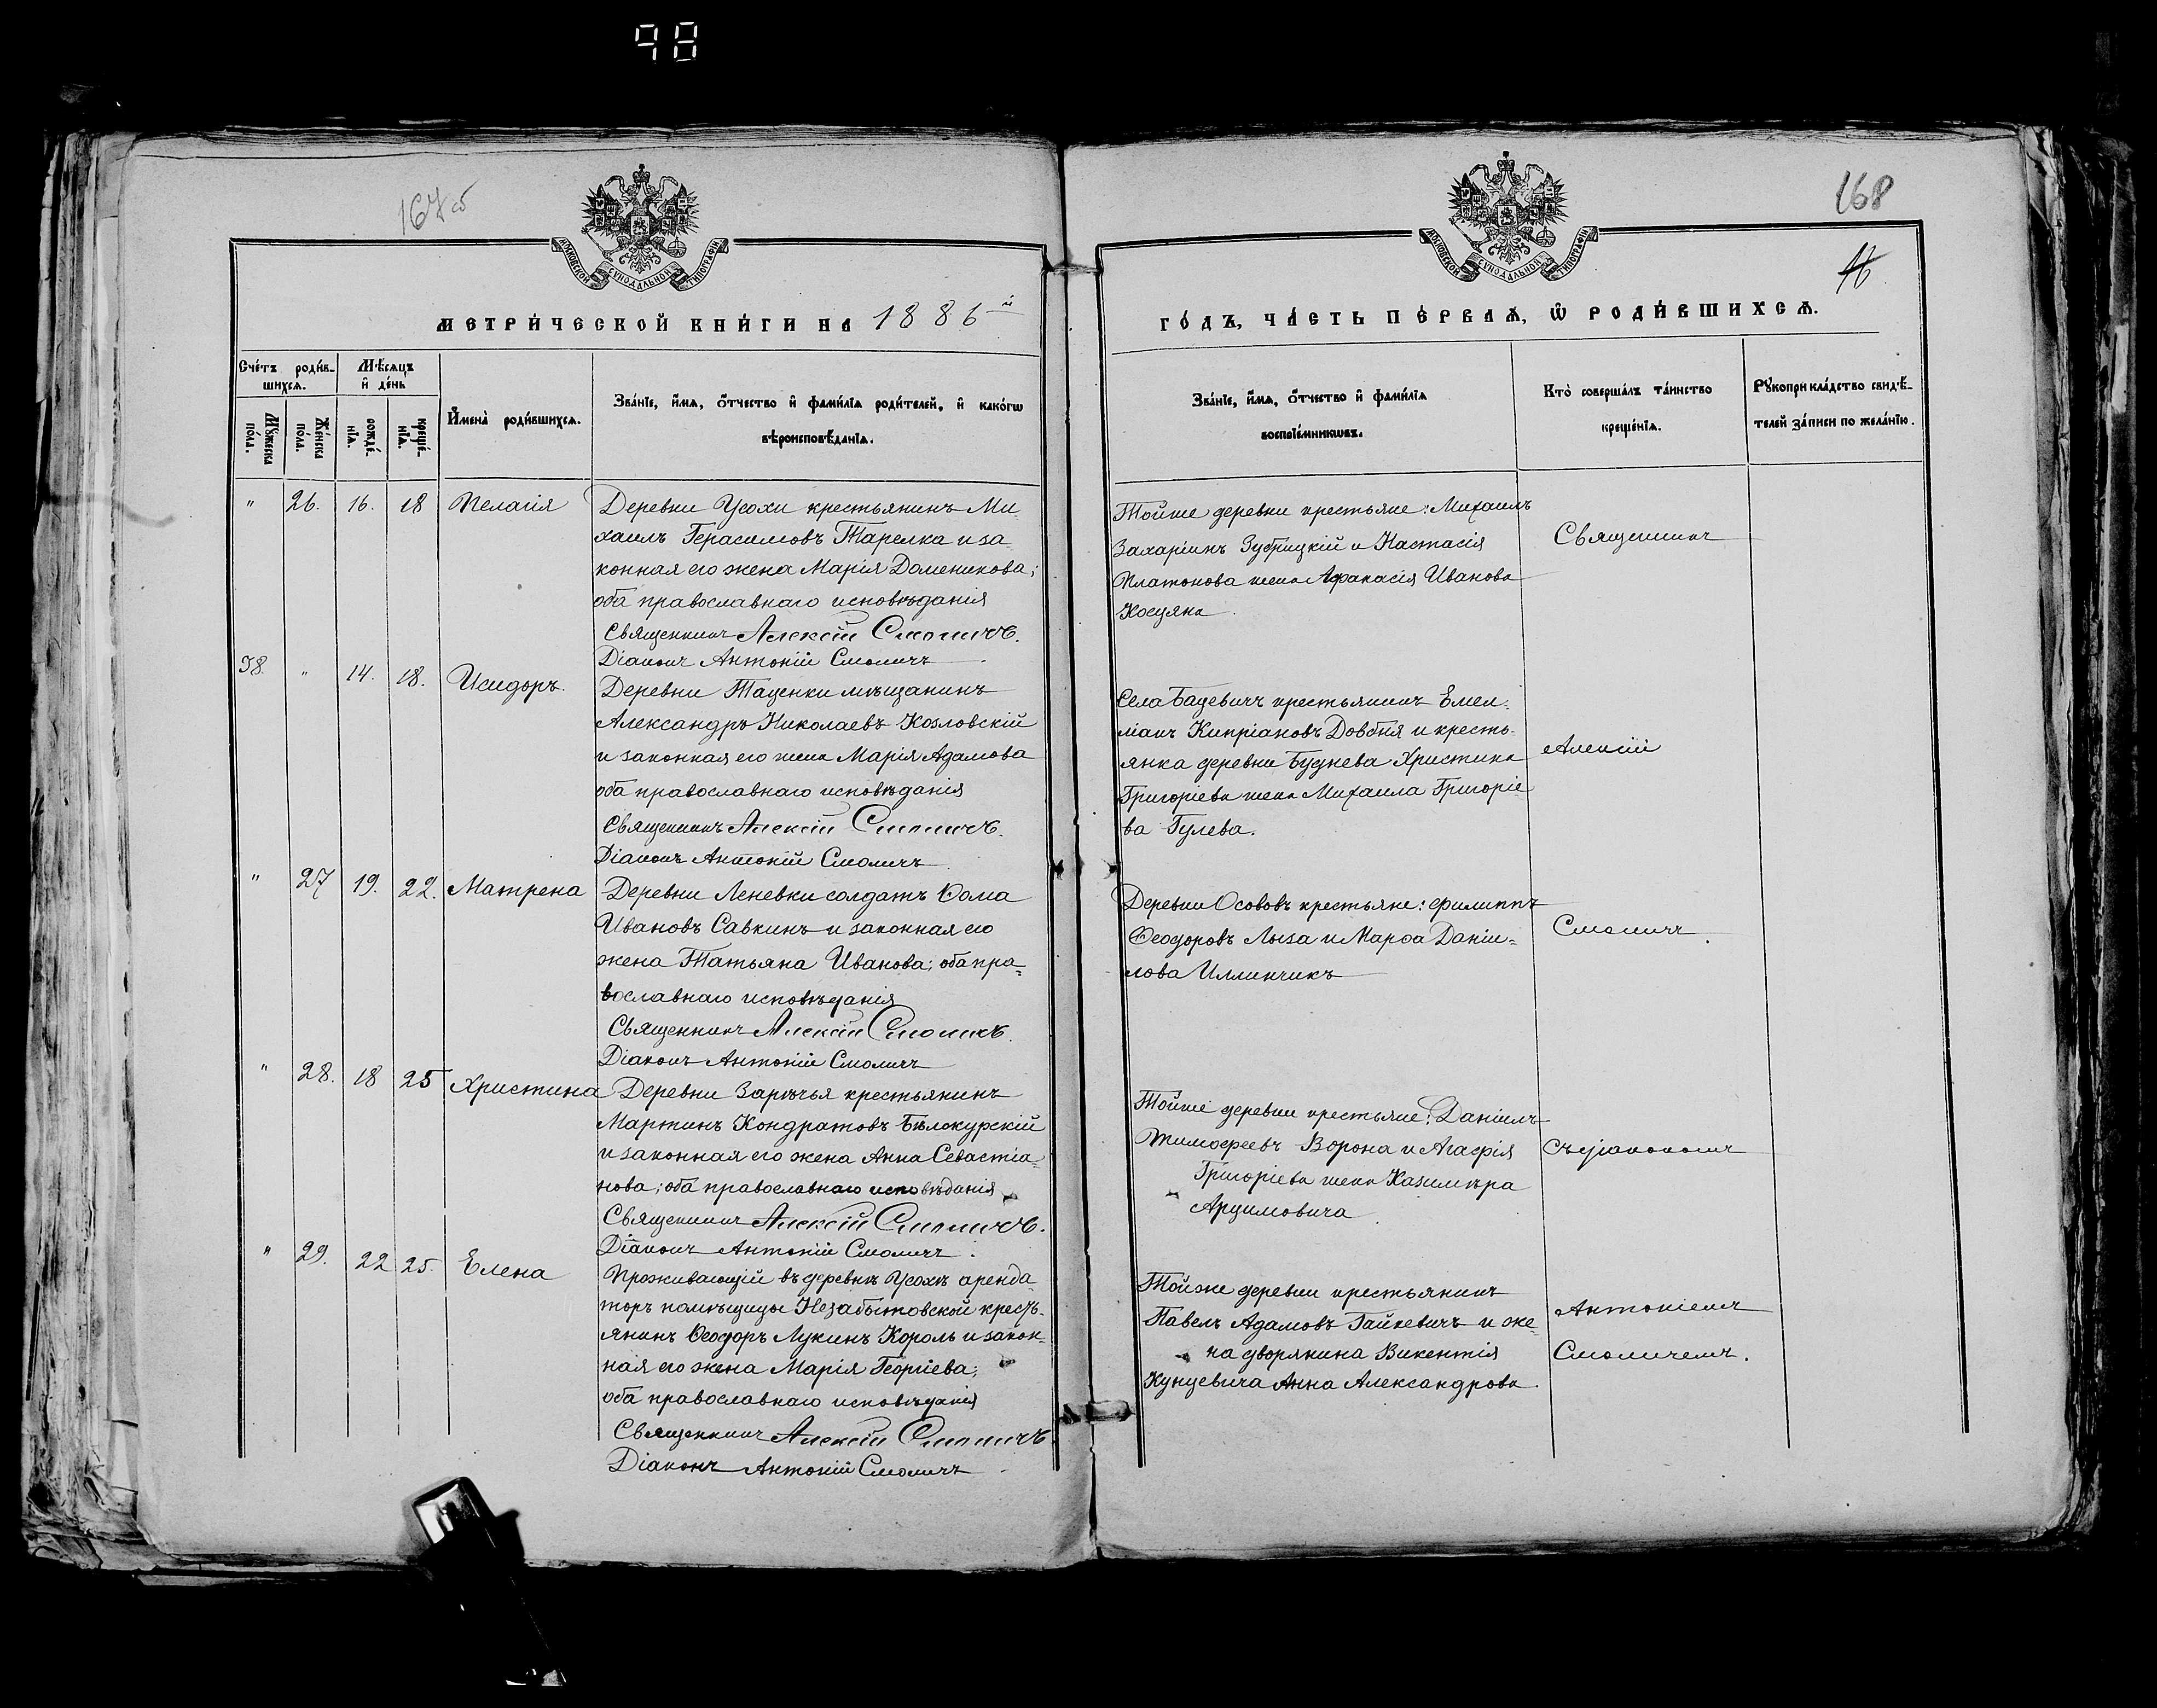 98
167об
168
16
МОСКОВСКОЙ СѴНОДАЛЬНОЙ ТИПОГРАФІИ
МОСКОВСКОЙ СѴНОДАЛЬНОЙ ТИПОГРАФІИ
МЕТРИ́ЧЕСКОЙ КНИ́ГИ НА 1886й
ГО́ДЪ, ЧА́СТЬ ПЕ́РВАѦ, Ѡ҆ РОДИ́ВШИХСѦ.
Сче́тъ роди́в-
шихсѧ.
Мꙋ́жеска по́ла.
Же́нска по́ла.
Мѣ́сѧцъ
и҆ де́нь
рожде́-
нїѧ.
креще́-
нїѧ.
И҆мена̀ роди́вшихсѧ.
Зва́нїе, и҆́мѧ, ѻ҆́тчество и҆ фами́лїѧ роди́телей, и҆ како́гѡ
вѣроисповѣ́данїѧ.
Зва́нїе, и҆́мѧ, ѻ҆́тчество и҆ фами́лїѧ
воспрїе́мникѡвъ.
Кто̀ соверша́лъ та́инство
креще́нїѧ.
Рꙋкоприкла́дство свидѣ́-
телей за́писи по жела́нїю.
" 26. 16. 18 Пелагія
Деревни Усохи крестьянинъ Ми-
хаилъ Герасимовъ Тарелка и за-
конная его жена Марія Доменикова;
оба православнаго исповѣданія
Священникъ Алексій Смоличъ.
Діаконъ Антоній Смоличъ
Тойже деревни крестьяне: Михаилъ
Захаріинъ Зубрицкій и Настасія
Платонова жена Афанасія Иванова
Косуяна.
Священникъ
38. " 14. 18. Исидоръ.
Деревни Таценки мѣщанинъ
Александръ Николаевъ Козловскій
и законная его жена Марія Адамова
оба православнаго исповѣданія
Священникъ Алексій Смоличъ.
Діаконъ Антоній Смоличъ
Села Бацевичъ крестьянинъ Емел-
ліанъ Кипріановъ Довбня и кресть-
янка деревни Буднева Христина
Григоріева жена Михаила Григоріе-
ва Гулева.
Алексій
" 27 19. 22. Матрена
Деревни Леневки солдатъ Ѳома
Ивановъ Савкинъ и законная его
жена Татьяна Иванова; оба пра-
вославнаго исповѣданія
Священникъ Алексій Смоличъ.
Діаконъ Антоній Смоличъ
Деревни Осововъ крестьяне: Филиппъ
Ѳеодоровъ Лыза и Марѳа Даніи-
лова Иллинчикъ
Смоличъ.
" 28. 18 25 Христина
Деревни Зарѣчья крестьянинъ
Мартинъ Кондратовъ Бѣлокурскій
и законная его жена Анна Севастіа-
нова; оба православнаго исповѣданія
Священникъ Алексій Смоличъ.
Діаконъ Антоній Смоличъ.
Тойже деревни крестьяне: Даніилъ
Тимофеевъ Ворона и Агафія
Григоріева жена Казимѣра
Арцимовича
Съ діакономъ
" 29. 22 25. Елена
Проживающій въ деревнѣ Усохѣ аренда-
торъ помѣщицы Незабытовской кресть-
янинъ Ѳеодоръ Лукинъ Король и закон-
ная его жена Марія Георгіева;
оба православнаго исповѣданія
Священникъ Алексій Смоличъ.
Діаконъ Антоній Смоличъ
Тойже деревни крестьянинъ
Павелъ Адамовъ Гайкевичъ и же-
на дворянина Викентія
Кунцевича Анна Александрова.
Антоніемъ
Смоличемъ.